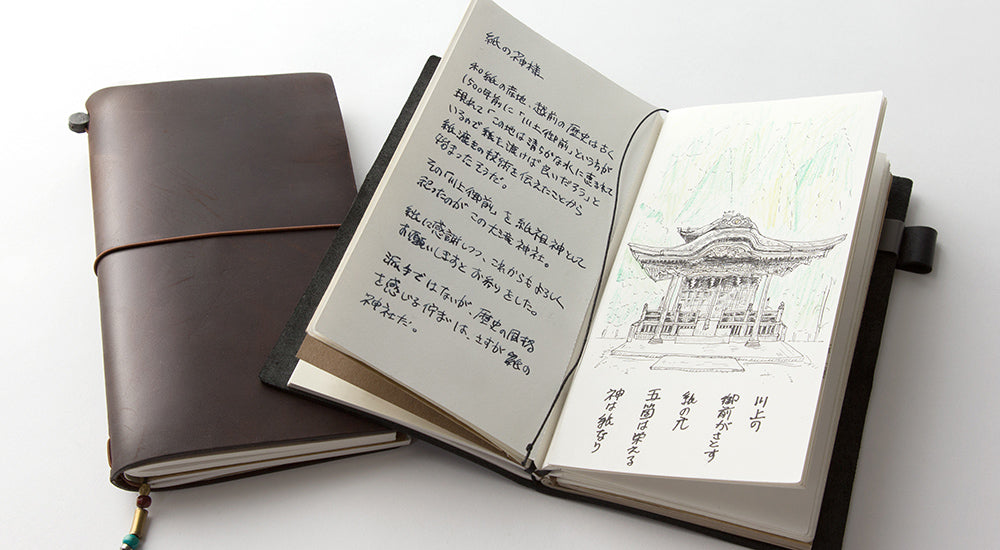 紙の神様
和紙の産地、越前の歴史は古く
1500年前に「川上御前」という方が
現れて「この地は清らかな水に恵まれて
いるので紙を漉けば良いだろう」と
紙漉きの技術を伝えたことから
始まったそうだ。
その「川上御前」を紙祖神として
祀ったのがこの大滝神社。
紙に感謝しつつ、これからもよろしく
お願いしますとお参りをした。
派手ではないが、歴史の風格
を感じる佇まいは、さすが紙の
神社だ。
川上の
御前がさとす
紙の元
五箇は栄える
神は紙なり